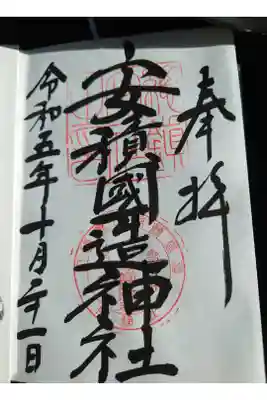 奉拝
安積國造神社
令和五年十月二十一日